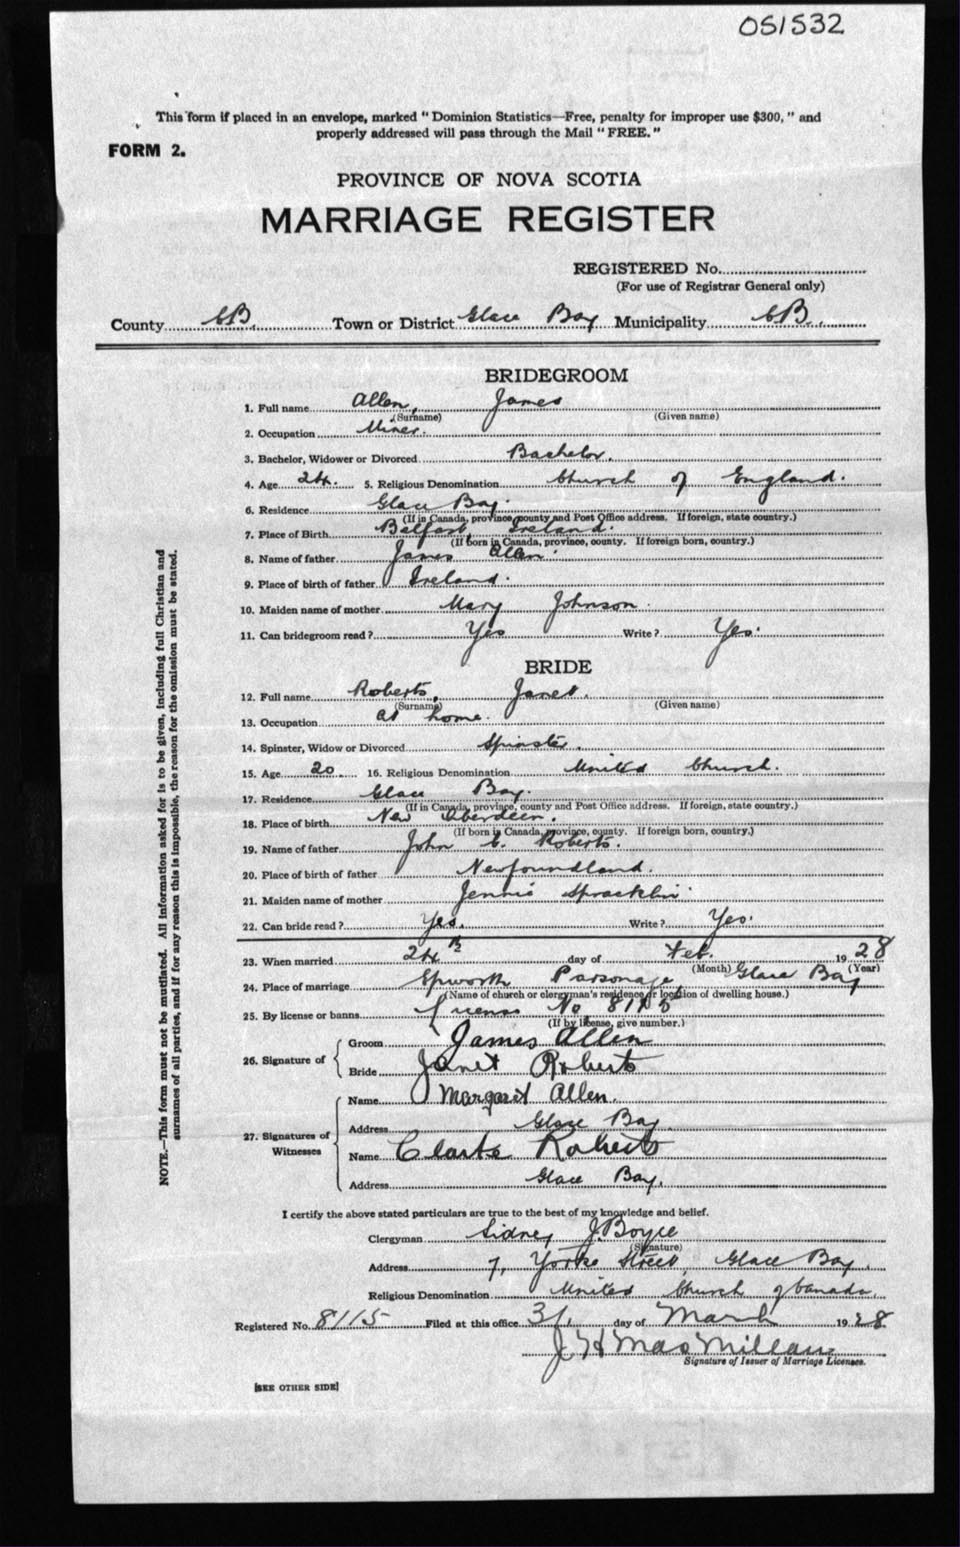 051532
This form if placed in an envelope, marked " Dominion Statistics—Free, penalty for improper use $300, " and
properly addressed will pass through the Mail " FREE. "
FORM 2.
PROVINCE OF NOVA SCOTIA
MARRIAGE REGISTER
REGISTERED No.
(For use of Registrar General only)
County CB. Town or District Glace Bay Municipality CB.
BRIDEGROOM
1. Full name Allen, James
(Surname) (Given name)
2. Occupation Miner.
3. Bachelor, Widower or Divorced Bachelor.
4. Age 24. 5. Religious Denomination Church of England.
6. Residence Glace Bay.
(If in Canada, province county and Post Office address. If foreign, state country.)
7. Place of Birth Belfast, Ireland.
(If born in Canada, province, county. If foreign born, country.)
8. Name of father James Allen.
9. Place of birth of father Ireland.
10. Maiden name of mother Mary Johnson.
11. Can bridegroom read ? Yes Write ? Yes.
BRIDE
12. Full name Roberts, Janet.
(Surname) (Given name)
13. Occupation at home.
14. Spinster, Widow or Divorced Spinster.
15. Age 20 16. Religious Denomination United Church.
17. Residence Glace Bay.
(If in Canada, province, county and Post Office address. If foreign, state country.)
18. Place of birth New Aberdeen.
(If born in Canada, province, county. If foreign born, country.)
19. Name of father John C. Roberts.
20. Place of birth of father Newfoundland.
21. Maiden name of mother Jennie Spracklin
22. Can bride read ? Yes. Write ? Yes.
23. When married 24th day of Feb. 1928
(Month) (Year)
24. Place of marriage Epworth Parsonage Glace Bay
(Name of church or clergyman's residence or location of dwelling house.)
25. By license or banns License No 8115
(If by license, give number.)
26. Signature of
Groom James Allen
Bride Janet Roberts
27. Signatures of
Witnesses
Name Margaret Allen.
Address Glace Bay
Name Clarke Roberts
Address Glace Bay.
I certify the above stated particulars are true to the best of my knowledge and belief.
Clergyman Sidney J. Boyce
(Signature)
Address 7, Yorke Street, Glace Bay.
Religious Denomination United Church of Canada.
Registered No. 8115 Filed at this office 31, day of March 1928
J H MacMillan
Signature of Issuer of Marriage Licenses.
[SEE OTHER SIDE]
NOTE.—This form must not be mutilated. All information asked for is to be given, including full Christian and
surnames of all parties, and if for any reason this is impossible, the reason for the omission must be stated.